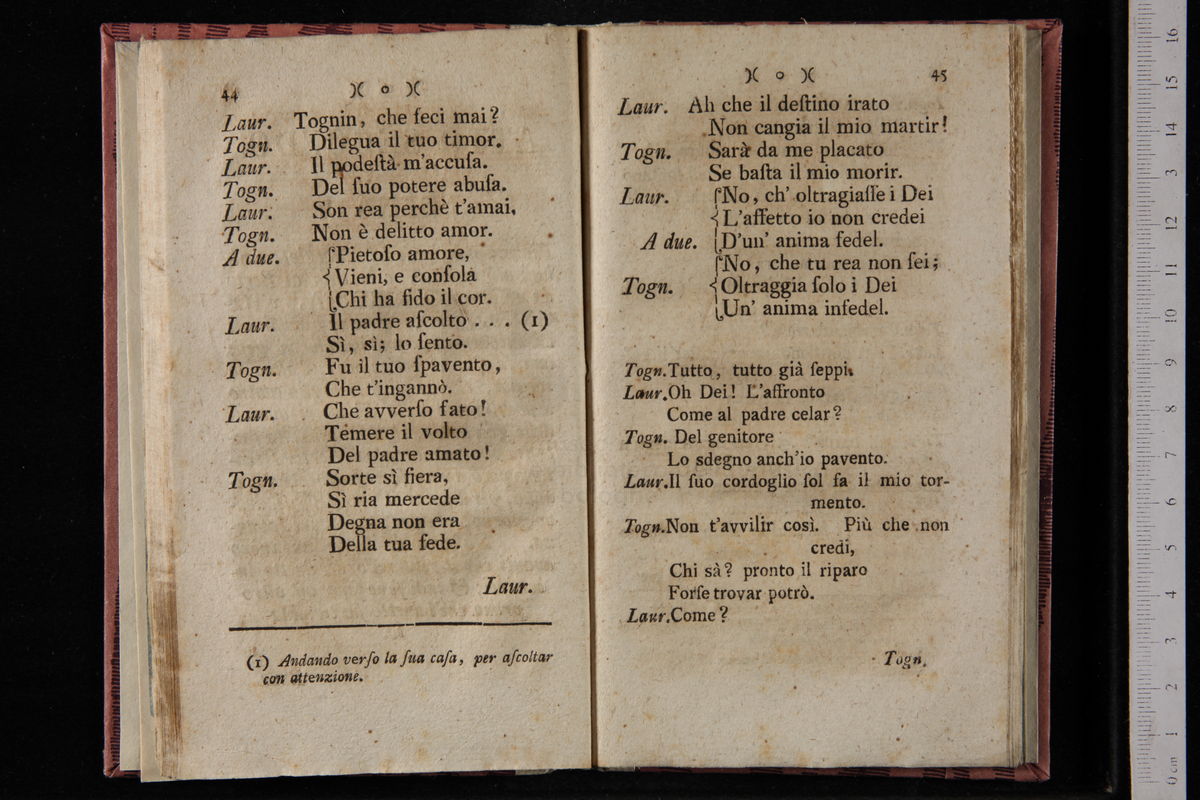 44 )( o )(
Laur. Tognin, che feci mai?
Togn. Dilegua il tuo timor.
Laur. Il podeſtà m'accuſa.
Togn. Del ſuo potere abuſa.
Laur. Son rea perchè t'amai,
Togn. Non è delitto amor.
A due. Pietoſo amore,
Vieni, e conſola
Chi ha fido il cor.
Laur. Il padre aſcolto . . . (1)
Sì, sì; lo ſento.
Togn. Fu il tuo ſpavento,
Che t'ingannò.
Laur. Che avverſo fato!
Temere il volto
Del padre amato!
Togn. Sorte sì fiera,
Sì ria mercede
Degna non era
Della tua fede.
Laur.
(1) Andando verſo la ſua caſa, per aſcoltar
con attenzione.
)( o )( 45
Laur. Ah che il deſtino irato
Non cangia il mio martir!
Togn. Sarà da me placato
Se baſta il mio morir.
Laur. No, ch' oltragiaſſe i Dei
L'affetto io non credei
A due. D'un' anima fedel.
No, che tu rea non ſei;
Togn. Oltraggia ſolo i Dei
Un' anima infedel.
Togn. Tutto, tutto già ſeppi.
Laur. Oh Dei! L'affronto
Come al padre celar?
Togn. Del genitore
Lo sdegno anch'io pavento.
Laur. Il ſuo cordoglio ſol fa il mio tor-
mento.
Togn. Non t'avvilir così. Più che non
credi,
Chi sà? pronto il riparo
Forſe trovar potrò.
Laur. Come?
Togn.
0 cm 1 2 3 4 5 6 7 8 9 10 11 12 13 14 15 16